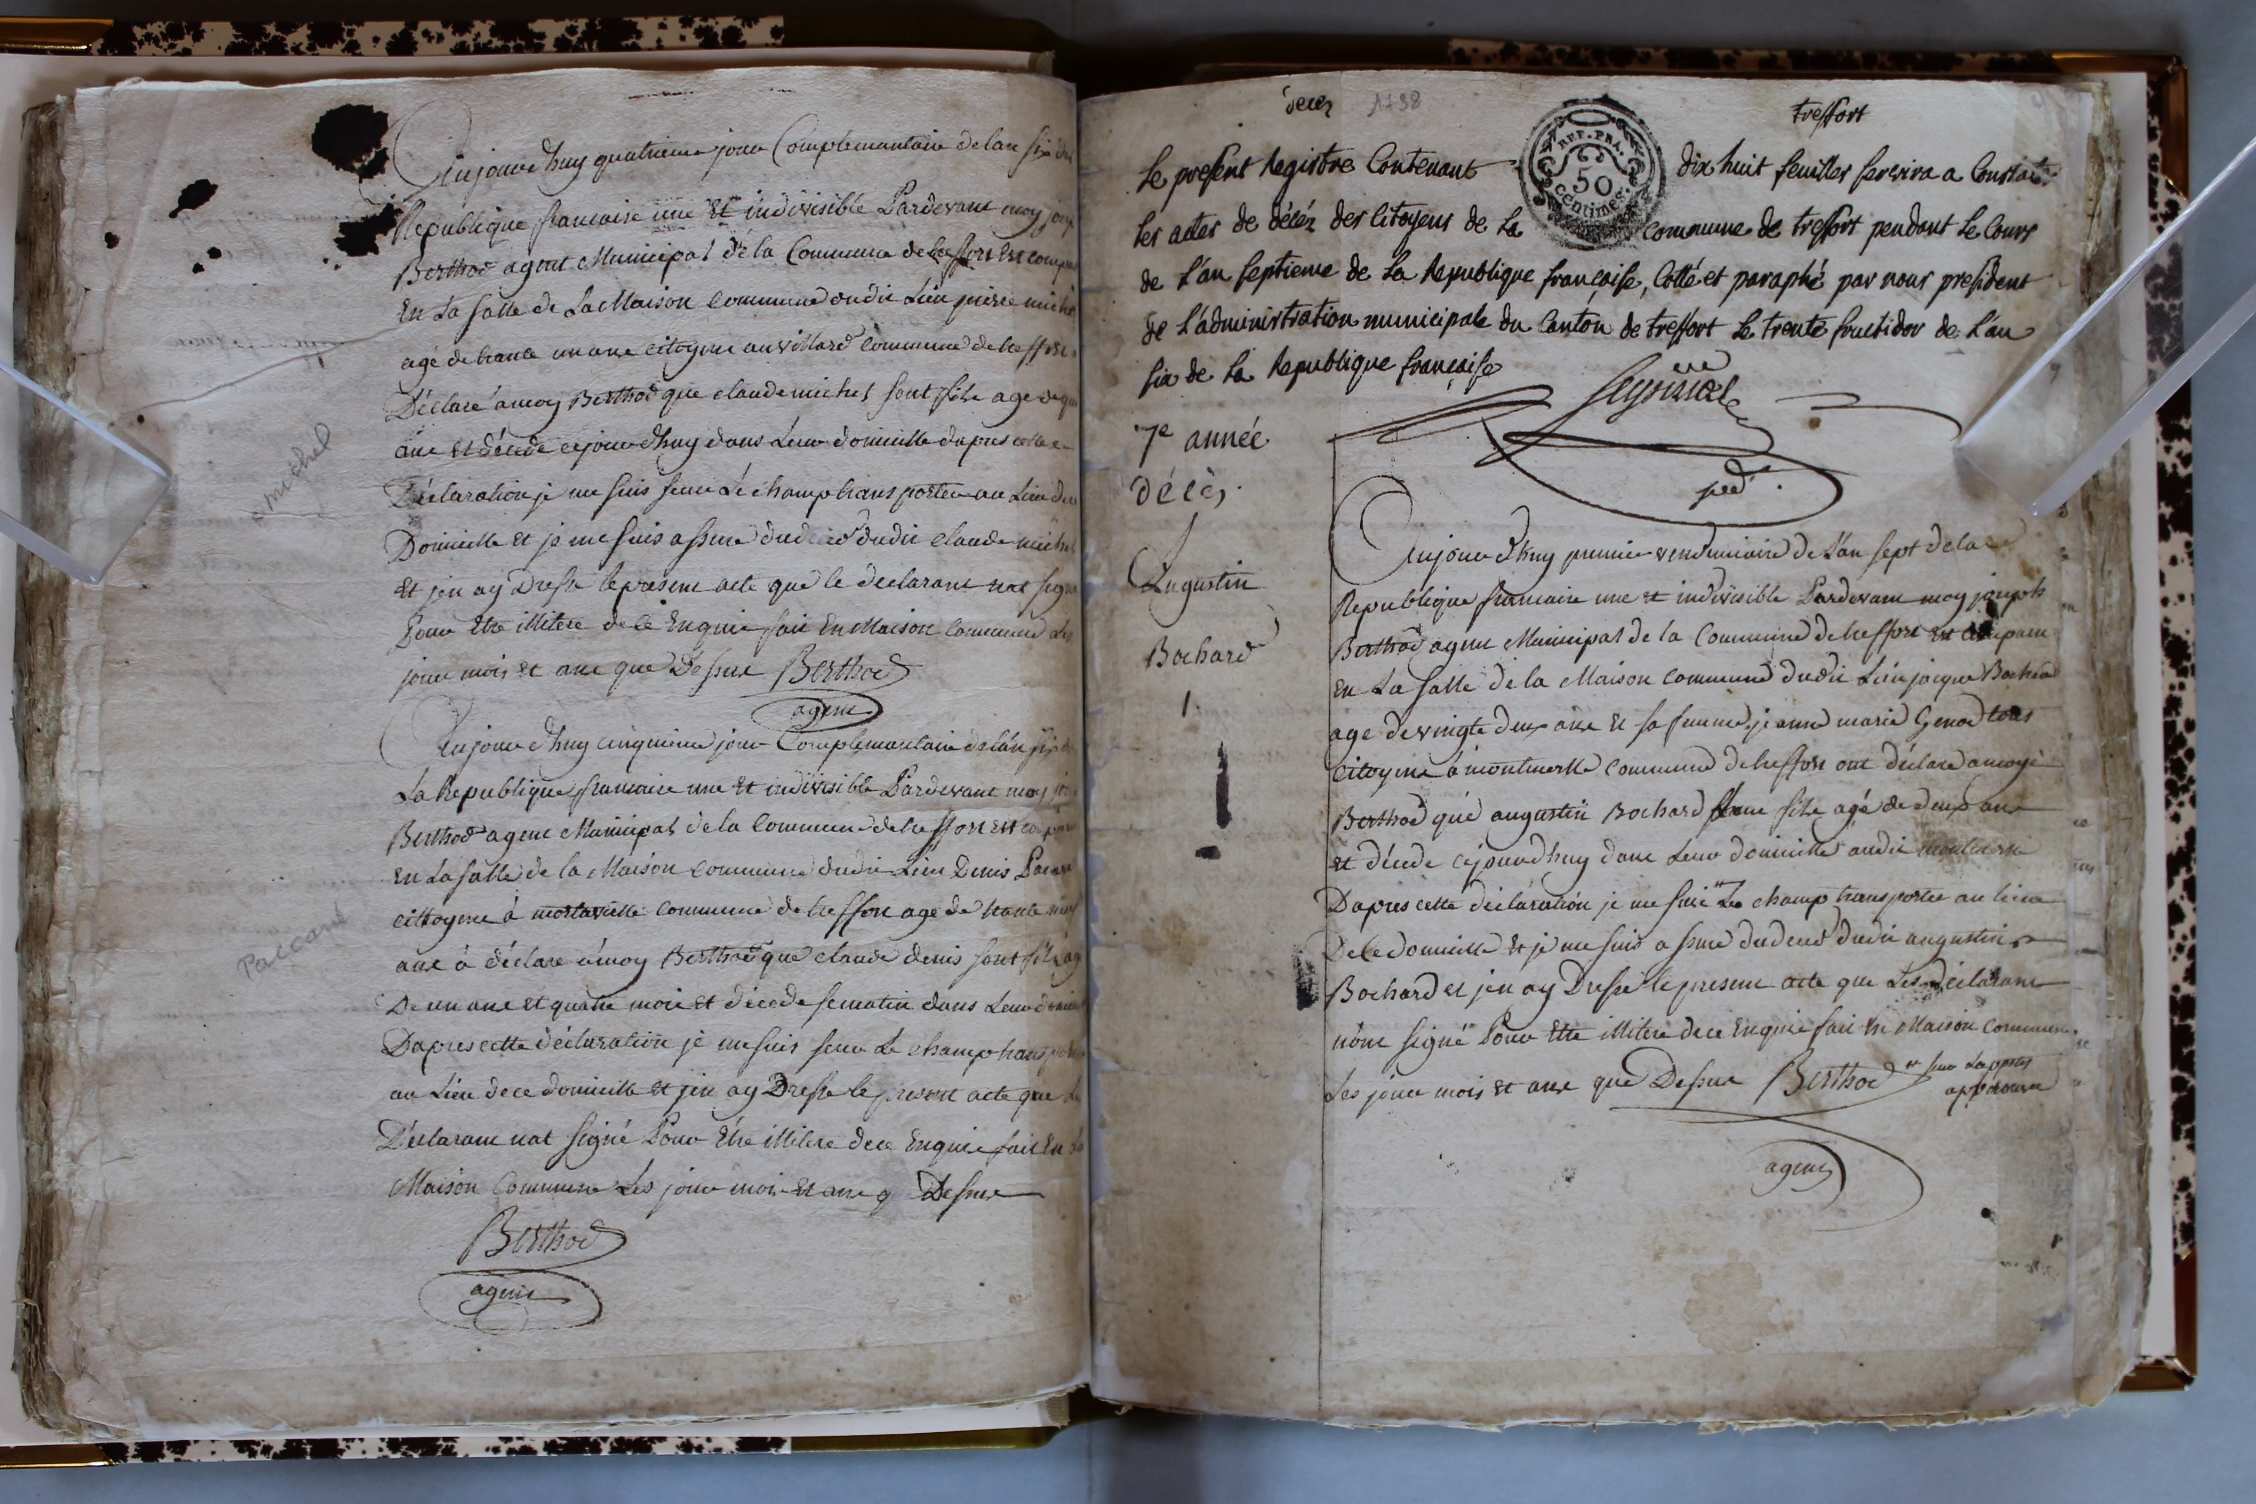 michel
Aujourdhuy quatrieme jour Complementaire de lan six de la
Republique francaise une et indivisible Pardevant moy
Berthod agent Municipal de la Commune de treffort est
En La salle de La Maison Commune dudit Lieu pierre michel
agé de trante un ans citoyent au villard Commune de treffort
Déclaré a moy Berthod que claude michel sont fils age de
ans et décéde cejourdhuy dans Leur domicille dapres cette
Déclaration je me suis seur Lé champ transporter au Lieu du
Domicille et je me suis assure du deced dudit claude michel
et jen ay Dressé le present acte que le declarant nat signé
Pour Etre illitere de ce Enquie fait En Maison Commune Les
jour mois et ans que Dessus Berthod
agent
Paccard
Aujourdhuy cinquieme jour Complemantaire de lan six de
La Republique francaise une et indivisible Pardevant moy
Berthod agent Municipal de la Commune de treffort est
en La salle de la Maison Commune dudit Lieu Denis
cittoyent á commune de treffort age de trante
ans á déclare á moy Berthod que claude denis sont fils
De un ans et quatre mois et décéde se matin dans Leur
Dapres cette déclaration je me suis seur Le champ
au Lieu de ce domicille et jen ay Dressé le present acte que
Déclarant nat signé Pour Etre illitere de ce Enquie fait En
Maison Commune Les jour mois et ans q Dessus
Berthod
agent
décès 1798 treffort
Le present Registre Contenant dix huit feuilles servira a Constater
les actes de décéz des Citoyens de La commune de treffort pendant Le Cours
de L'an septieme de La Republique françaíse, Cotté et paraphé par nous president
de L'administration municipale du Canton de treffort Le trente fructidor de L'an
six de La Republique française
REP. FRA.
50
centimes.
7e année
décès.
Augustin
Bochard
1.
Aujourdhuy premier vendemiaire de L'an sept de la
Republique francaise une et indivisible Pardevant moy joseph
Berthod agent Municipal de la Commune de treffort est Comparu
en La salle de la Maison Commune dudit Lieu jacque Bochard
age de vingte deux ans et sa femme jeanne marie tous
citoyens á Commune de treffort ont déclaré a moy
Berthod que augustin Bochard fils agé de deux ans
et décéde cejourdhuy dans Leur domicille audit
Dapres cette déclaration je me suis Le champ transporter au lieu
De ce domicille et je me suis assure du deced dudit augustin
Bochard et jen ay Dressé le present acte que Les déclarant
nont signé Pour Etre illitere de ce Enquie fait En Maison Commune
Les jour mois et ans que Dessus Berthod
seur
approuvé
agent